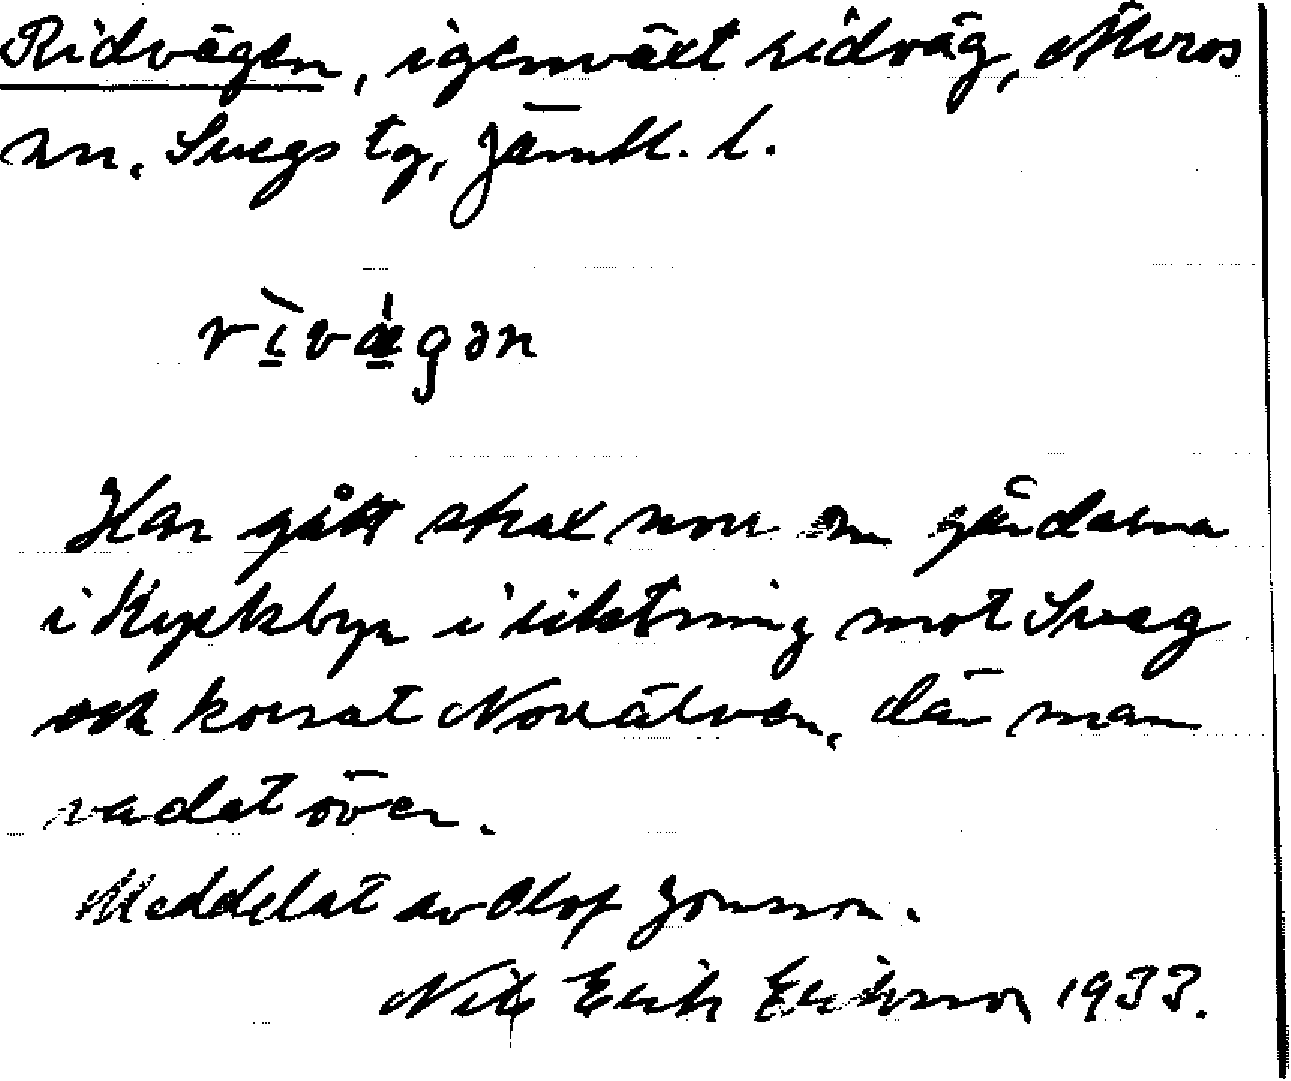 Ridvägen, igenväxt ridväg, Älvros
sn. Svegs tg, Jämtl. l.
rìvǽgən
Har gått strax norr om gårdarna
i Kyrkbyn i riktning mot Sveg
och korsat Norrälven, där man
vadat över.
Meddelat av Olof Jonsson.
Nils Erik Eriksson 1933.